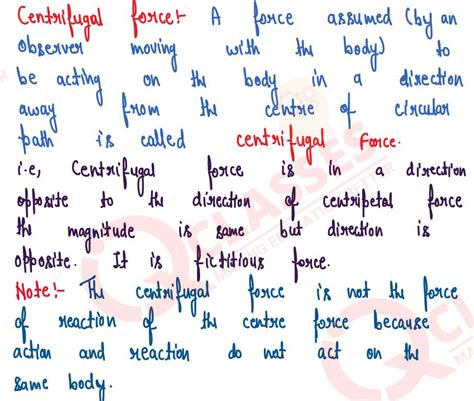 Centrifugal force:- A force assumed (by an
observer moving with the body) to
be acting on the body in a direction
away from the centre of circular
path is called centrifugal Force.
i.e, Centrifugal force is in a direction
opposite to the direction of centripetal force
the magnitude is same but direction is
opposite. It is fictitious force.
Note:- The centrifugal force is not the force
of reaction of the centre force because
action and reaction do not act on the
same body.